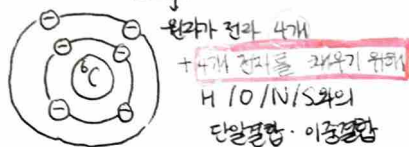 원자가 전자 4개
+ 4개 전자를 채우기 위해
H / O / N / S와의
단일결합 · 이중결합
6C